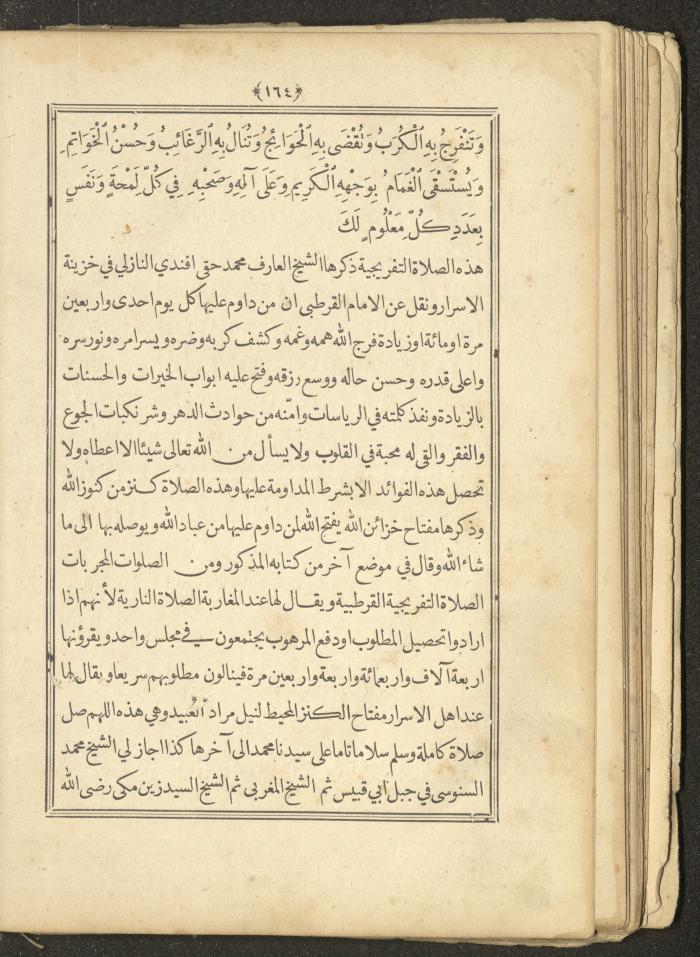 ﴿١٦٤﴾
وَتَنْفَرِجُ بِهِ ٱلْكُرَبُ وَتُقْضَى بِهِ ٱلْحَوَائِجُ وَتُنَالُ بِهِ ٱلرَّغَائِبُ وَحُسْنُ ٱلْخَوَاتِمِ
وَيُسْتَسْقَى ٱلْغَمَامُ بِوَجْهِهِ ٱلْكَرِيمِ وَعَلَى آلِهِ وَصَحْبِهِ فِي كُلِّ لَمْحَةٍ وَنَفَسٍ
بِعَدَدِ كُلِّ مَعْلُومٍ لَكَ
هذه الصلاة التفريجية ذكرها الشيخ العارف محمد حقى افندي النازلي في خزينة
الاسرار ونقل عن الامام القرطبي ان من داوم عليها كل يوم احدى واربعين
مرة او مائة او زيادة فرج الله همه وغمه وكشف كربه وضره ويسر امره ونور سره
واعلى قدره وحسن حاله ووسع رزقه وفتح عليه ابواب الخيرات والحسنات
بالزيادة ونفذ كلمته في الرياسات وامّنه من حوادث الدهر وشر نكبات الجوع
والفقر والقى له محبة في القلوب ولا يسأل من الله تعالى شيئا الا اعطاه ولا
تحصل هذه الفوائد الا بشرط المداومة عليها وهذه الصلاة كنز من كنوز الله
وذكرها مفتاح خزائن الله يفتح الله لمن داوم عليها من عباد الله ويوصله بها الى ما
شاء الله وقال في موضع آخر من كتابه المذكور ومن الصلوات المجربات
الصلاة التفريجية القرطبية ويقال لها عند المغاربة الصلاة النارية لأنهم اذا
ارادوا تحصيل المطلوب او دفع المرهوب يجتمعون في مجلس واحد ويقرؤنها
اربعة آلاف واربعمائة واربعة واربعين مرة فينالون مطلوبهم سريعا ويقال لها
عند اهل الاسرار مفتاح الكنز المحيط لنيل مراد العبيد وهي هذه اللهم صل
صلاة كاملة وسلم سلاما تاما على سيدنا محمد الى آخرها كذا اجاز لي الشيخ محمد
السنوسى في جبل ابي قبيس ثم الشيخ المغربى ثم الشيخ السيد زين مكى رضى الله